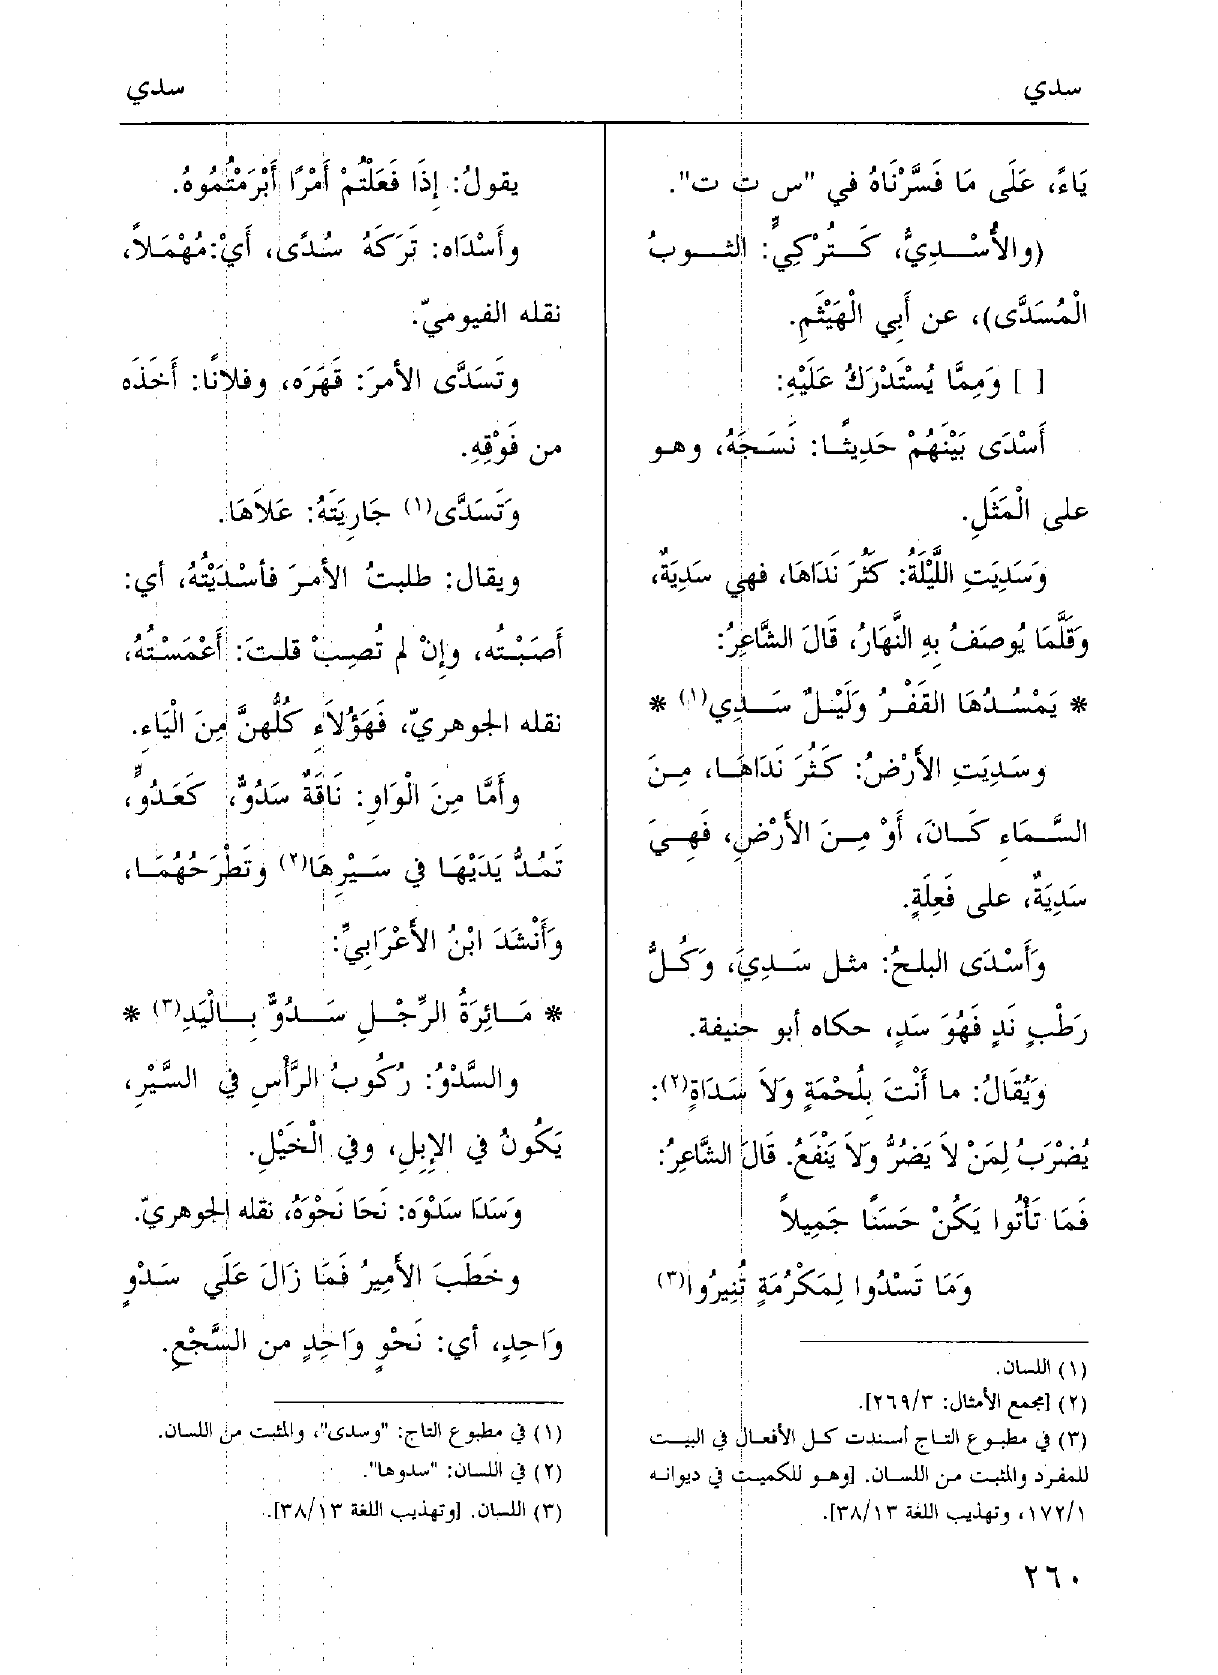 سدي
سدي
يَاءً، عَلَى مَا فَسَّرْنَاهُ في "س ت ت".
(والأُسْدِيُّ، كَتُرْكِيٍّ: الثوبُ
الْمُسَدَّى)، عن أَبي الْهَيْثَمِ.
[ ] وَمِمَّا يُسْتَدْرَكُ عَلَيْهِ:
أَسْدَى بَيْنَهُمْ حَدِيثًا: نَسَجَهُ، وهو
على الْمَثَلِ.
وَسَدِيَتِ اللَّيْلَةُ: كَثُرَ نَدَاهَا، فهي سَدِيَةٌ،
وَقَلَّمَا يُوصَفُ بِهِ النَّهَارُ، قَالَ الشَّاعِرُ:
* يَمْسُدُهَا القَفْرُ وَلَيْلٌ سَدِي(١) *
وسَدِيَتِ الأَرْضُ: كَثُرَ نَدَاهَا، مِنَ
السَّمَاءِ كَانَ، أَوْ مِنَ الأَرْضِ، فَهِيَ
سَدِيَةٌ، على فَعِلَةٍ.
وَأَسْدَى البلحُ: مثل سَدِيَ، وَكُلُّ
رَطْبٍ نَدٍ فَهُوَ سَدٍ، حكاه أبو حنيفة.
وَيُقَالُ: ما أَنْتَ بِلُحْمَةٍ وَلاَ سَدَاةٍ(٢):
يُضْرَبُ لِمَنْ لاَ يَضُرُّ وَلاَ يَنْفَعُ. قَالَ الشَّاعِرُ:
فَمَا تَأْتُوا يَكُنْ حَسَنًا جَمِيلاً
وَمَا تَسْدُوا لِمَكْرُمَةٍ تُنِيرُوا(٣)
(١) اللسان.
(٢) [مجمع الأمثال: ٢٦٩/٣].
(٣) في مطبوع التاج أسندت كل الأفعال في البيت
للمفرد والمثبت من اللسان. [وهو للكميت في ديوانه
١٧٢/١، وتهذيب اللغة ٣٨/١٣].
يقولُ: إِذَا فَعَلْتُمْ أَمْرًا أَبْرَمْتُمُوهُ.
وأَسْدَاه: تَرَكَهُ سُدًى، أَيْ: مُهْمَلاً،
نقله الفيوميّ.
وتَسَدَّى الأمرَ: قَهَرَه، وفلانًا: أَخَذَه
من فَوْقِهِ.
وَتَسَدَّى(١) جَارِيَتَهُ: عَلاَهَا.
ويقال: طلبتُ الأمرَ فأسْدَيْتُهُ، أي:
أَصَبْتُه، وإنْ لم تُصِبْ قلتَ: أَعْمَسْتُهُ،
نقله الجوهريّ، فَهَؤُلاَءِ كُلُّهنَّ مِنَ الْيَاءِ.
وأَمَّا مِنَ الْوَاوِ: نَاقَةٌ سَدُوٌّ، كَعَدُوٍّ،
تَمُدُّ يَدَيْهَا في سَيْرِهَا(٢) وتَطْرَحُهُمَا،
وَأَنْشَدَ ابْنُ الأَعْرَابِيِّ:
* مَائِرَةُ الرِّجْلِ سَدُوٌّ بِالْيَدِ(٣) *
والسَّدْوُ: رُكُوبُ الرَّأْسِ في السَّيْرِ،
يَكُونُ في الإِبِلِ، وفي الْخَيْلِ.
وَسَدَا سَدْوَه: نَحَا نَحْوَهُ، نقله الجوهريّ.
وخَطَبَ الأَمِيرُ فَمَا زَالَ عَلَى سَدْوٍ
وَاحِدٍ، أي: نَحْوٍ وَاحِدٍ من السَّجْعِ.
(١) في مطبوع التاج: "وسدى"، والمثبت من اللسان.
(٢) في اللسان: "سدوها".
(٣) اللسان. [وتهذيب اللغة ٣٨/١٣].
٢٦٠